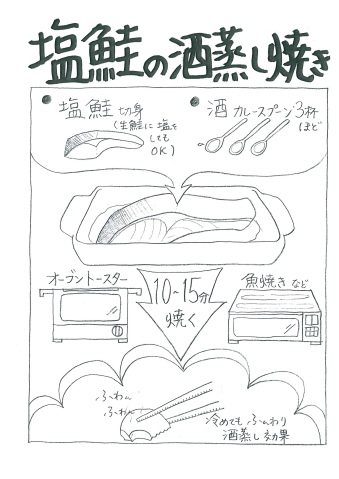 塩鮭の酒蒸し焼き
塩鮭 切身
(生鮭に塩を
しても
OK)
酒 カレースプーン3杯
ほど
オーブントースター
10~15分
焼く
魚焼き など
ふわん
ふわん
冷めても ふんわり
酒蒸し効果